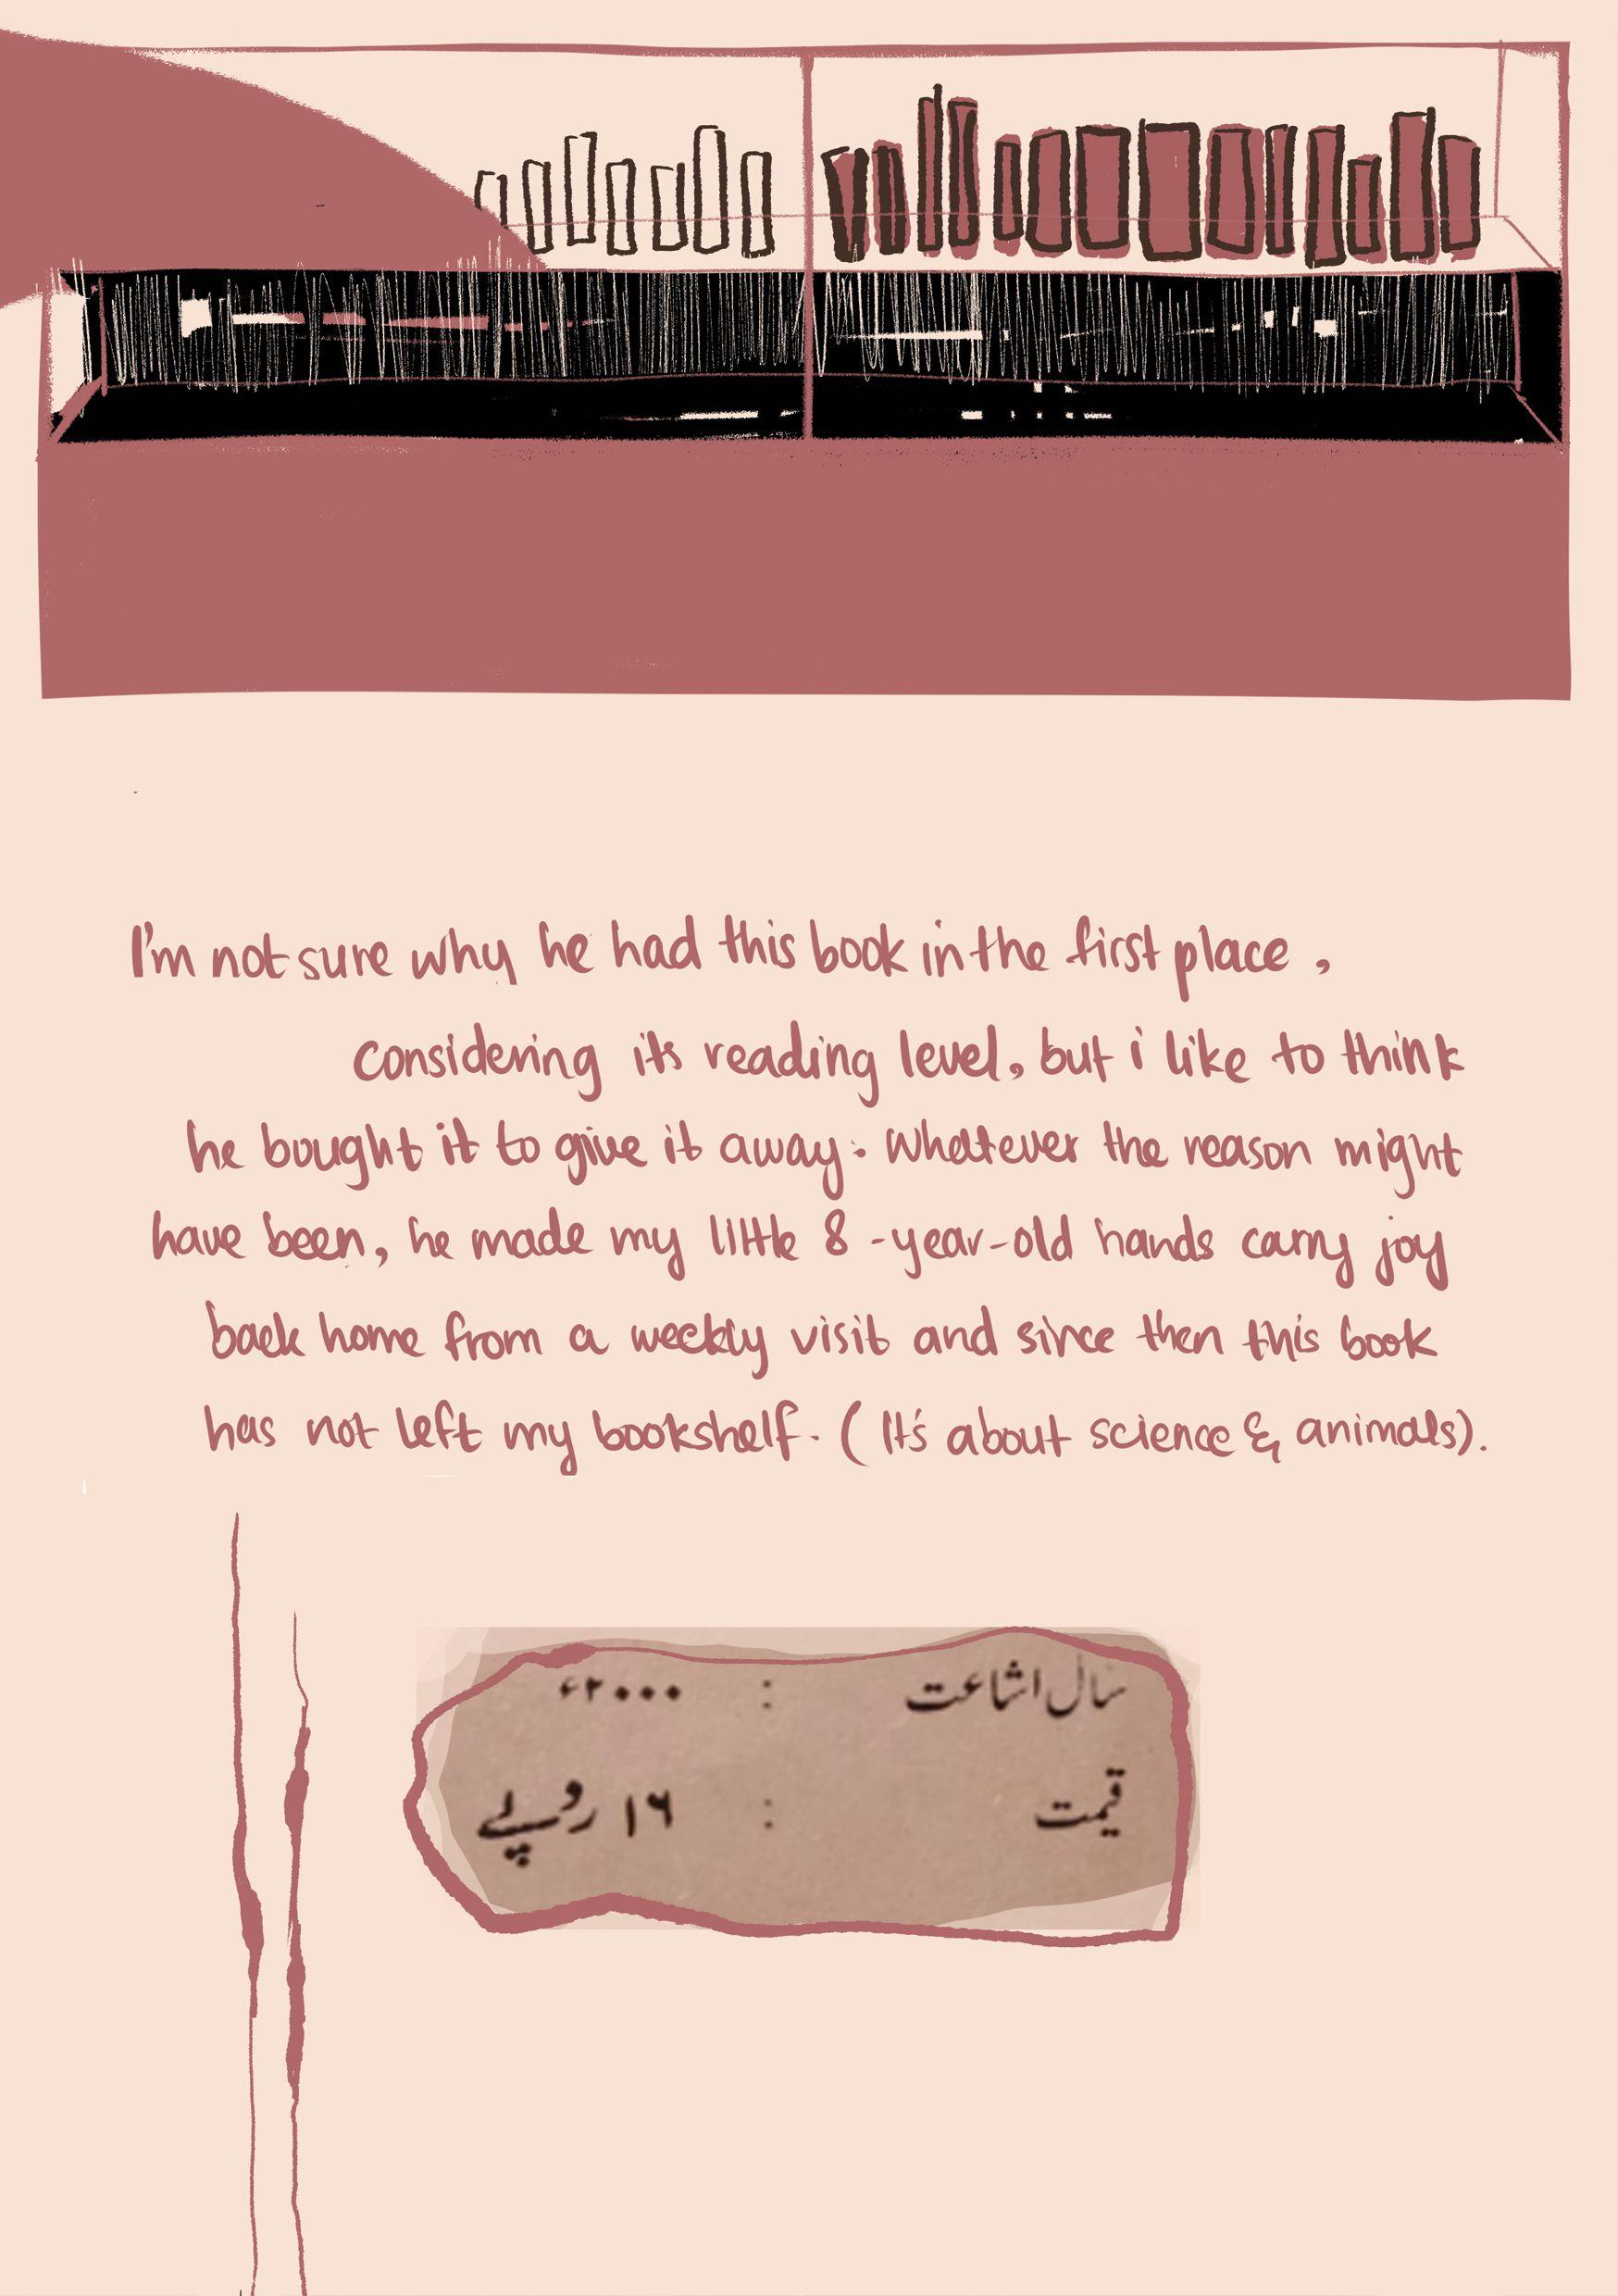 I'm not sure why he had this book in the first place,
considering its reading level, but i like to think
he bought it to give it away. Whatever the reason might
have been, he made my little 8-year-old hands carry joy
back home from a weekly visit and since then this book
has not left my bookshelf. (It's about science & animals).
سال اشاعت : ۲۰۰۰ء
قیمت : ۱۶ روپے